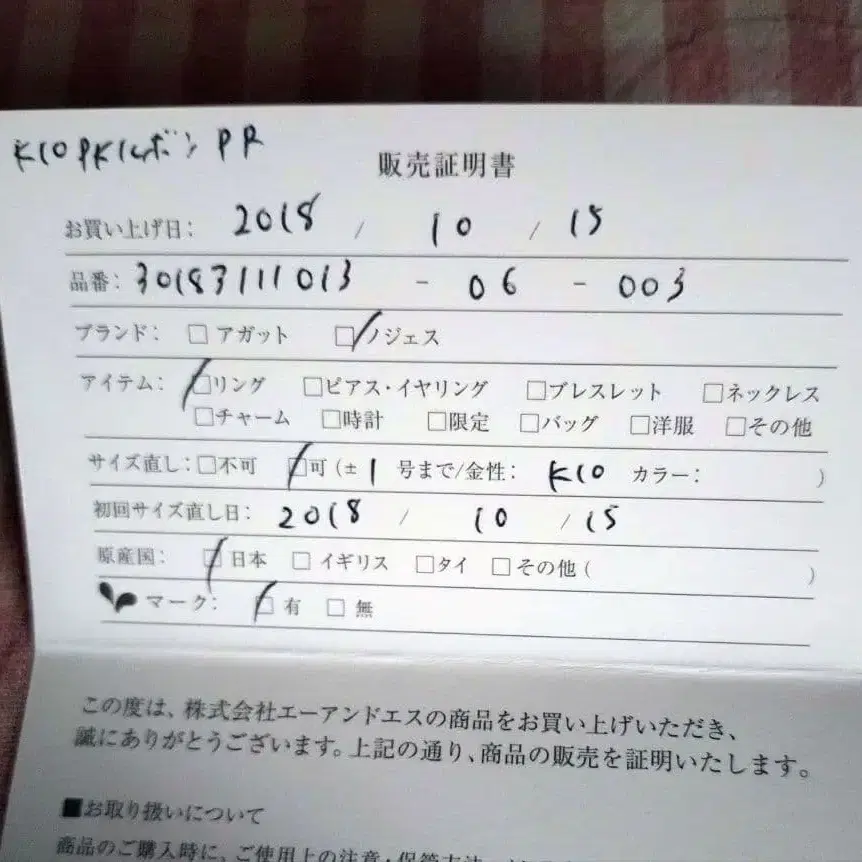 K10 PKルボン PR
販売証明書
お買い上げ日: 2018 / 10 / 15
品番: 30183111013 - 06 - 003
ブランド: □ アガット □ ノジェス
アイテム: □リング □ピアス・イヤリング □ブレスレット □ネックレス
□チャーム □時計 □限定 □バッグ □洋服 □その他
サイズ直し: □不可 □可 (± 1 号まで/金性: K10 カラー: )
初回サイズ直し日: 2018 / 10 / 15
原産国: □ 日本 □ イギリス □タイ □ その他 ( )
マーク: □ 有 □ 無
この度は、株式会社エーアンドエスの商品をお買い上げいただき、
誠にありがとうございます。上記の通り、商品の販売を証明いたします。
■お取り扱いについて
商品のご購入時に、ご使用上の注意・保管方法